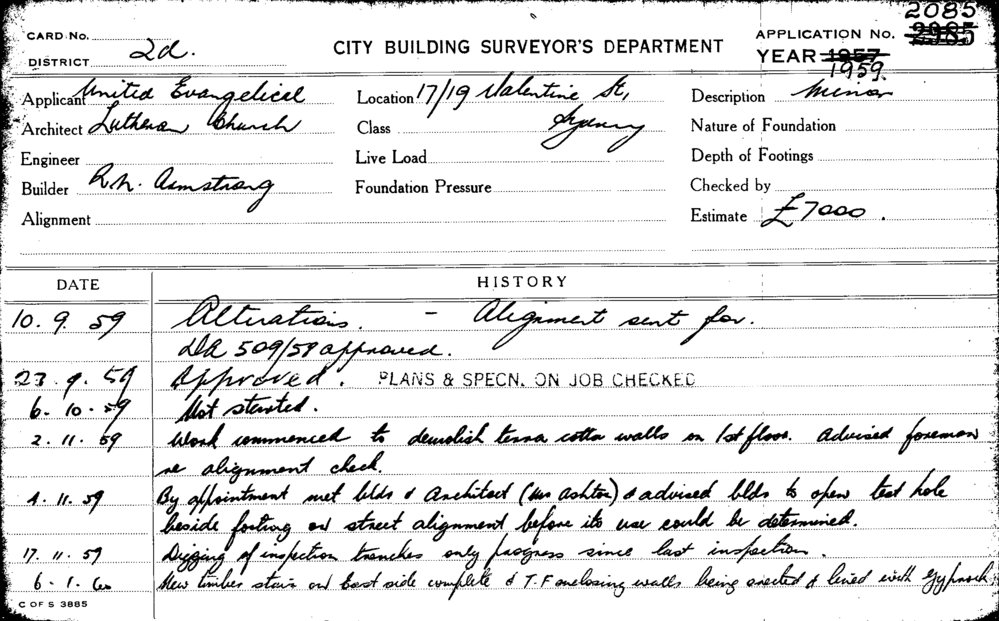 CARD No.
DISTRICT 2d.
CITY BUILDING SURVEYOR'S DEPARTMENT
2085
APPLICATION No. 2985
YEAR 1957
1959.
Applicant United Evangelical
Architect Lutheran Church
Engineer
Builder R.N. Armstrong
Alignment
Location 17/19 Valentine St,
Class Sydney
Live Load
Foundation Pressure
Description Minor
Nature of Foundation
Depth of Footings
Checked by
Estimate £7000.
DATE HISTORY
10. 9. 59 Alterations. - Alignment sent for.
DA 509/58 approved.
23. 9. 59 Approved. PLANS & SPECN. ON JOB CHECKED
6. 10. 59 Not started.
2. 11. 59 Work commenced to demolish terra cotta walls on 1st floor. Advised foreman
re alignment check.
4. 11. 59 By appointment met bldr & Architect (Mr Ashton) & advised bldr to open test hole
beside footing on street alignment before its use could be determined.
17. 11. 59 Digging of inspection trenches only progress since last inspection.
6. 1. 60 New timber stair on East side complete & T.F enclosing walls being erected & lined with Gyprock.
C OF S 3885